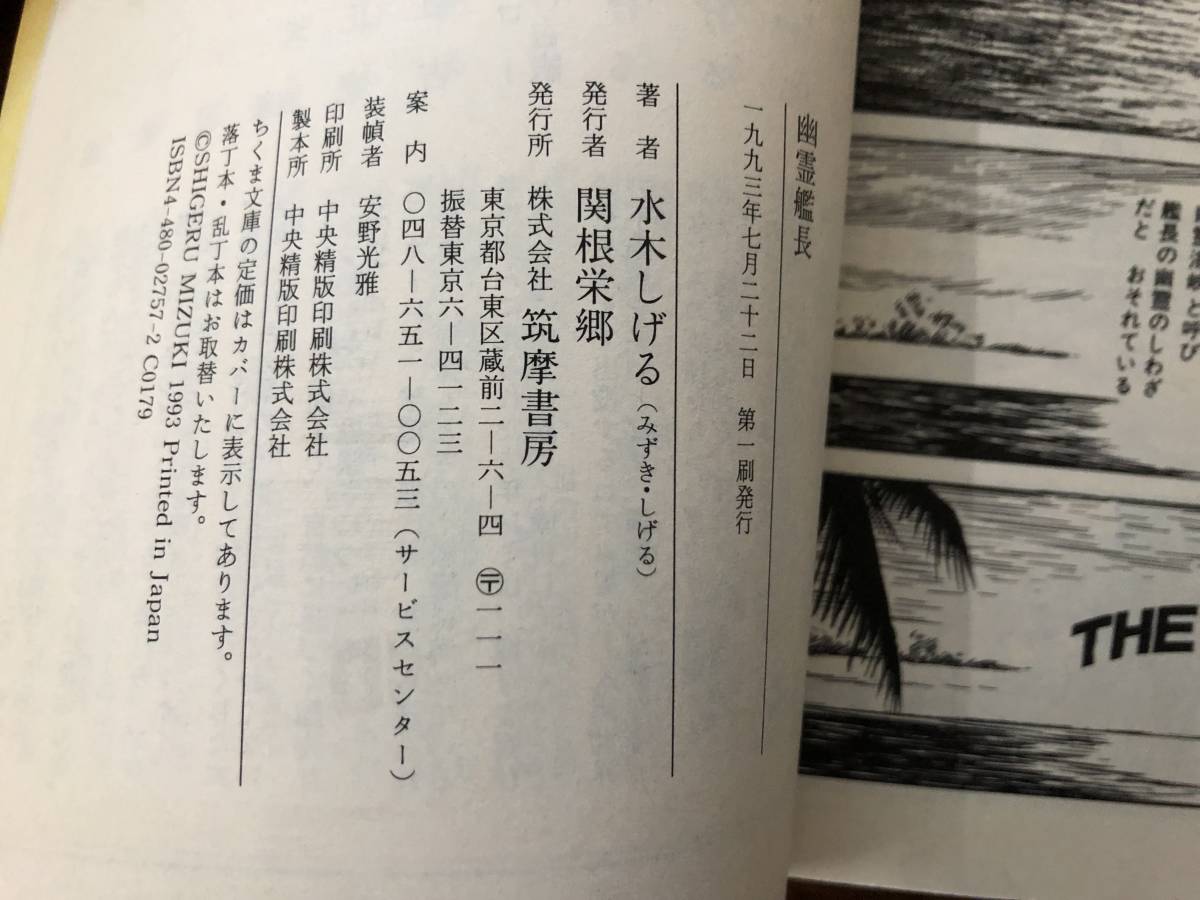 艦長の幽霊のしわざ
だと おそれている
THE
幽霊艦長
一九九三年七月二十二日 第一刷発行
著者 水木しげる（みずき・しげる）
発行者 関根栄郷
発行所 株式会社 筑摩書房
東京都台東区蔵前二―六―四 〒一一一
振替東京六―四一二三
案内 〇四八―六五一―〇〇五三（サービスセンター）
装幀者 安野光雅
印刷所 中央精版印刷株式会社
製本所 中央精版印刷株式会社
ちくま文庫の定価はカバーに表示してあります。
落丁本・乱丁本はお取替いたします。
©SHIGERU MIZUKI 1993 Printed in Japan
ISBN4-480-02757-2 C0179